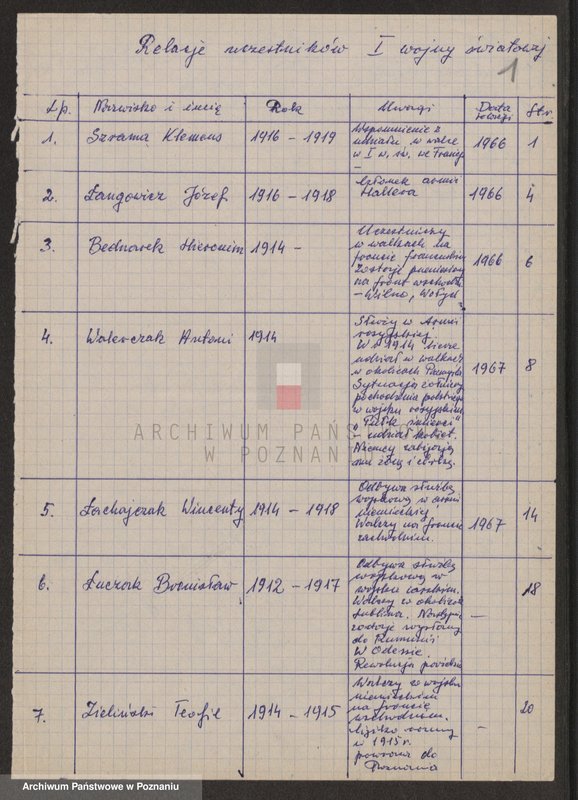 Relacje uczestników I wojny światowej
1
Lp. Nazwisko i imię Rok Uwagi Data relacji Str.
1. Szrama Klemens 1916 - 1919 Wspomnienie z
udziału w walce
w I w. św. we Francji 1966 1
2. Langowicz Józef 1916 - 1918 Członek armii
Hallera 1966 4
3. Bednarek Hieronim 1914 - Uczestniczy
w walkach na
froncie francuskim
Zostaje przeniesiony
na front wschodni
- Wilno, Wołyń 1966 6
4. Walerczak Antoni 1914 Służy w Armii
rosyjskiej.
W r. 1914 bierze
udział w walkach
w okolicach
Sytuacja żołnierzy
pochodzenia polskiego
w wojsku rosyjskim
"Pułk śmierci"
- udział kobiet.
Niemcy zabijają
mu żonę i córkę. 1967 8
5. Łachajczak Wincenty 1914 - 1918 Odbywa służbę
wojskową w armii
niemieckiej
Walczy na froncie
zachodnim. 1967 14
6. Łuczak Bronisław 1912 - 1917 Odbywa służbę
wojskową w
wojsku carskim.
Walczy w okolicach
Lublina. Następnie
zostaje wysłany
do Rumunii
W Odessie.
Rewolucja - 18
7. Zieliński Teofil 1914 - 1915 Walczy w wojsku
niemieckim
na froncie
wschodnim.
Ciężko ranny
w 1915 r.
powraca do
Poznania - 20
ARCHIWUM PAŃSTWOWE
W POZNANIU
Archiwum Państwowe w Poznaniu